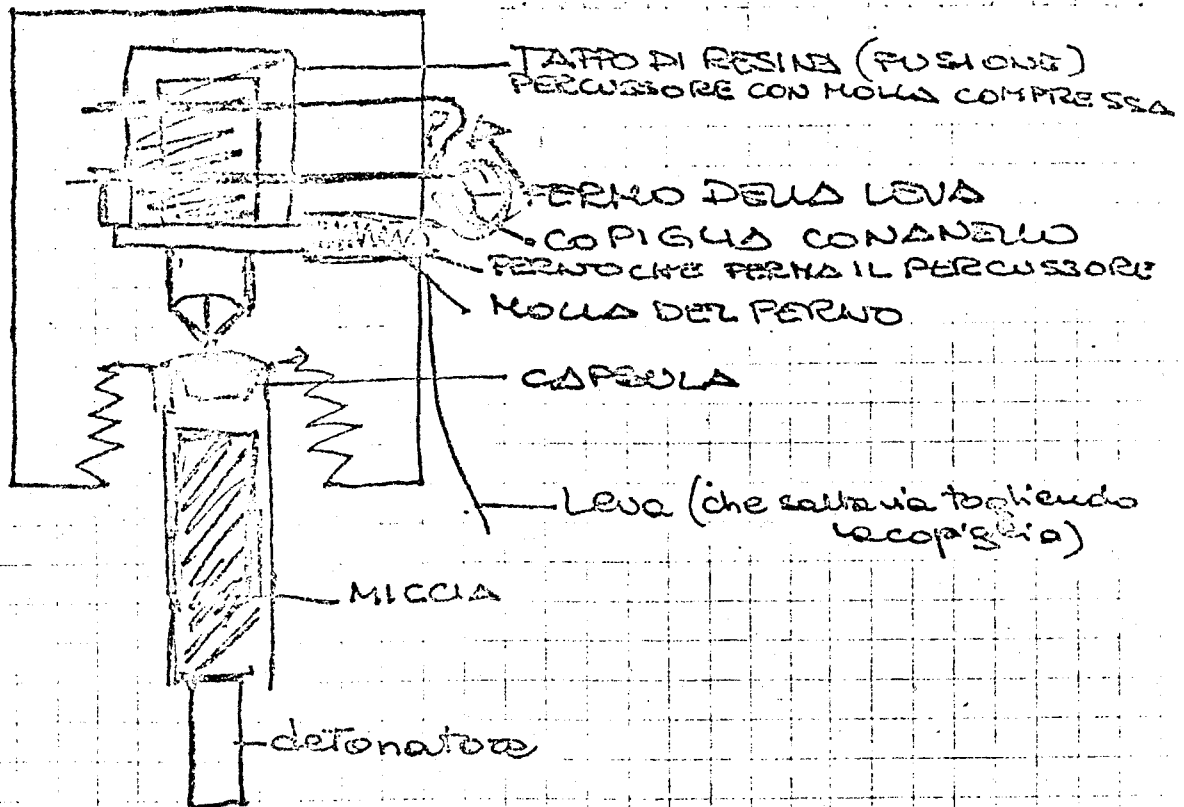 TAPPO DI RESINA (FUSIONE)
PERCUSSORE CON MOLLA COMPRESSA
FERMO DELLA LEVA
COPIGLIA CON ANELLO
PERNO CHE FERMA IL PERCUSSORE
MOLLA DEL PERNO
CAPSULA
Leva (che salta via togliendo
la copiglia)
MICCIA
detonatore